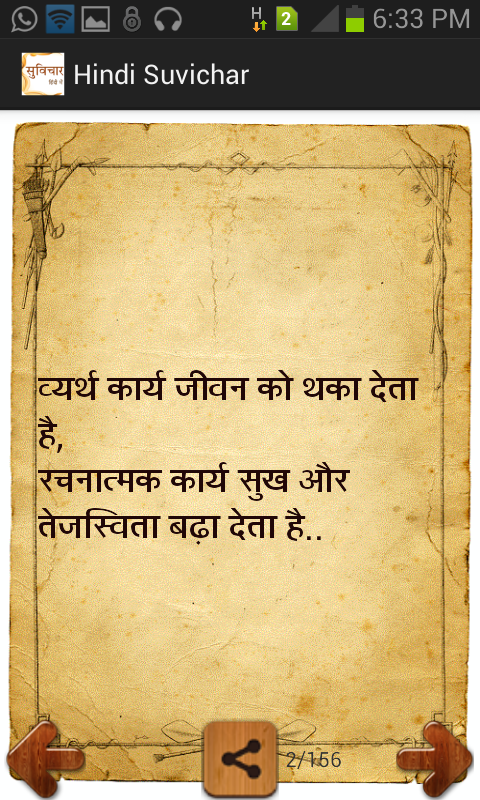 H
2
6:33 PM
सुविचार
हिंदी में
Hindi Suvichar
व्यर्थ कार्य जीवन को थका देता
है,
रचनात्मक कार्य सुख और
तेजस्विता बढ़ा देता है..
2/156